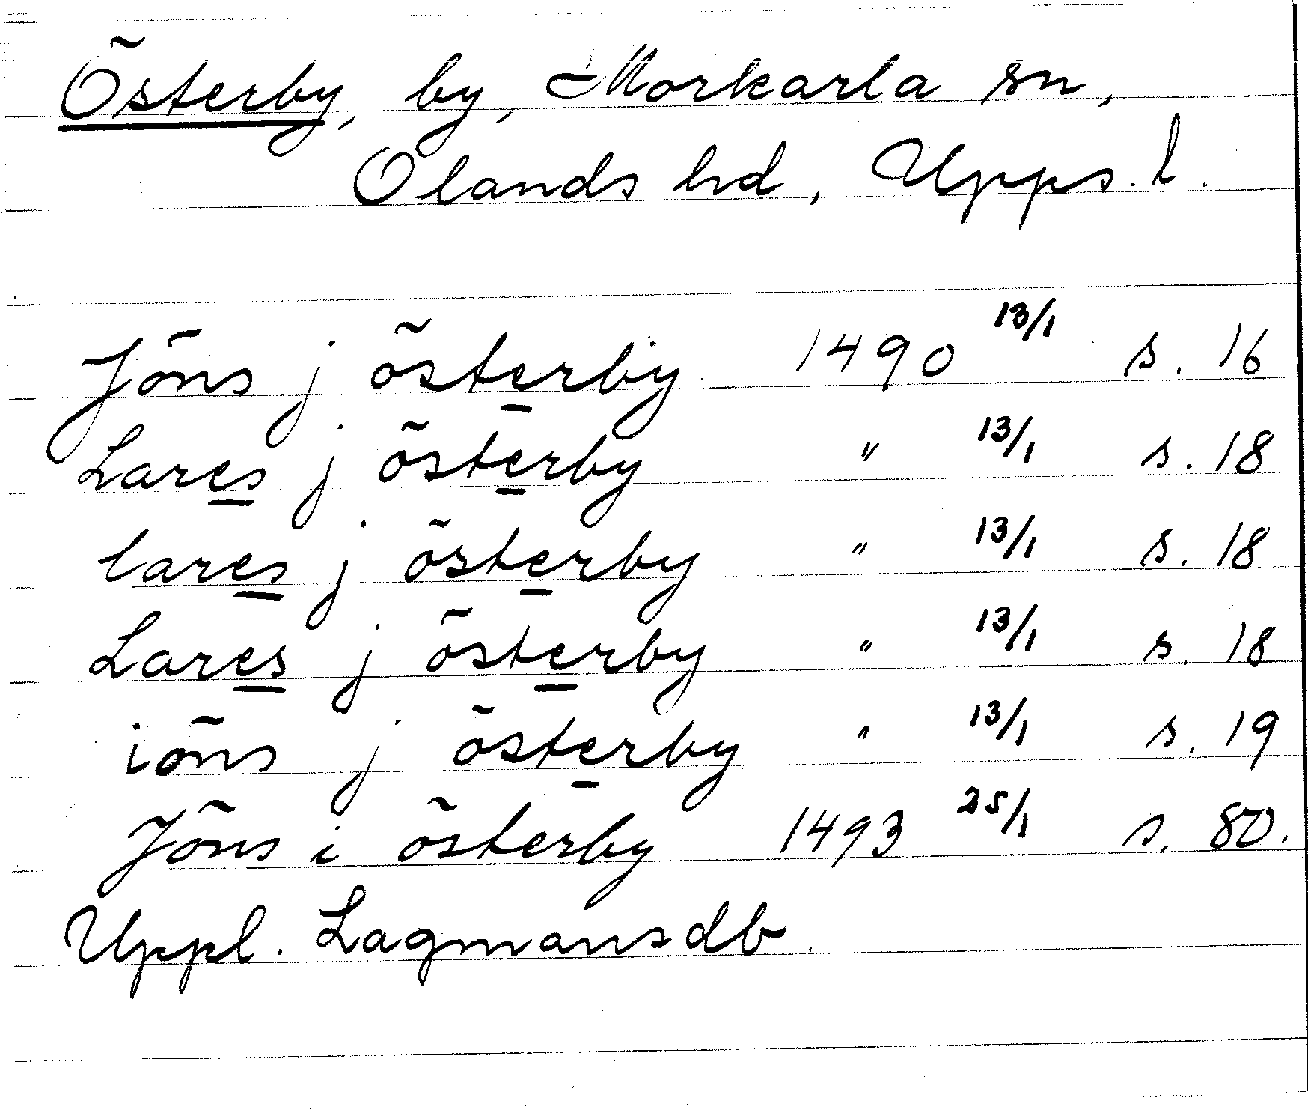 Österby, by, Morkarla sn,
Olands hd, Upps. l.
Jöns j österby 1490 13/1 s. 16
Lares j österby " 13/1 s. 18
lares j österby " 13/1 s. 18
Lares j österby " 13/1 s. 18
iöns j österby " 13/1 s. 19
Jöns i österby 1493 25/1 s. 80.
Uppl. Lagmansdb.